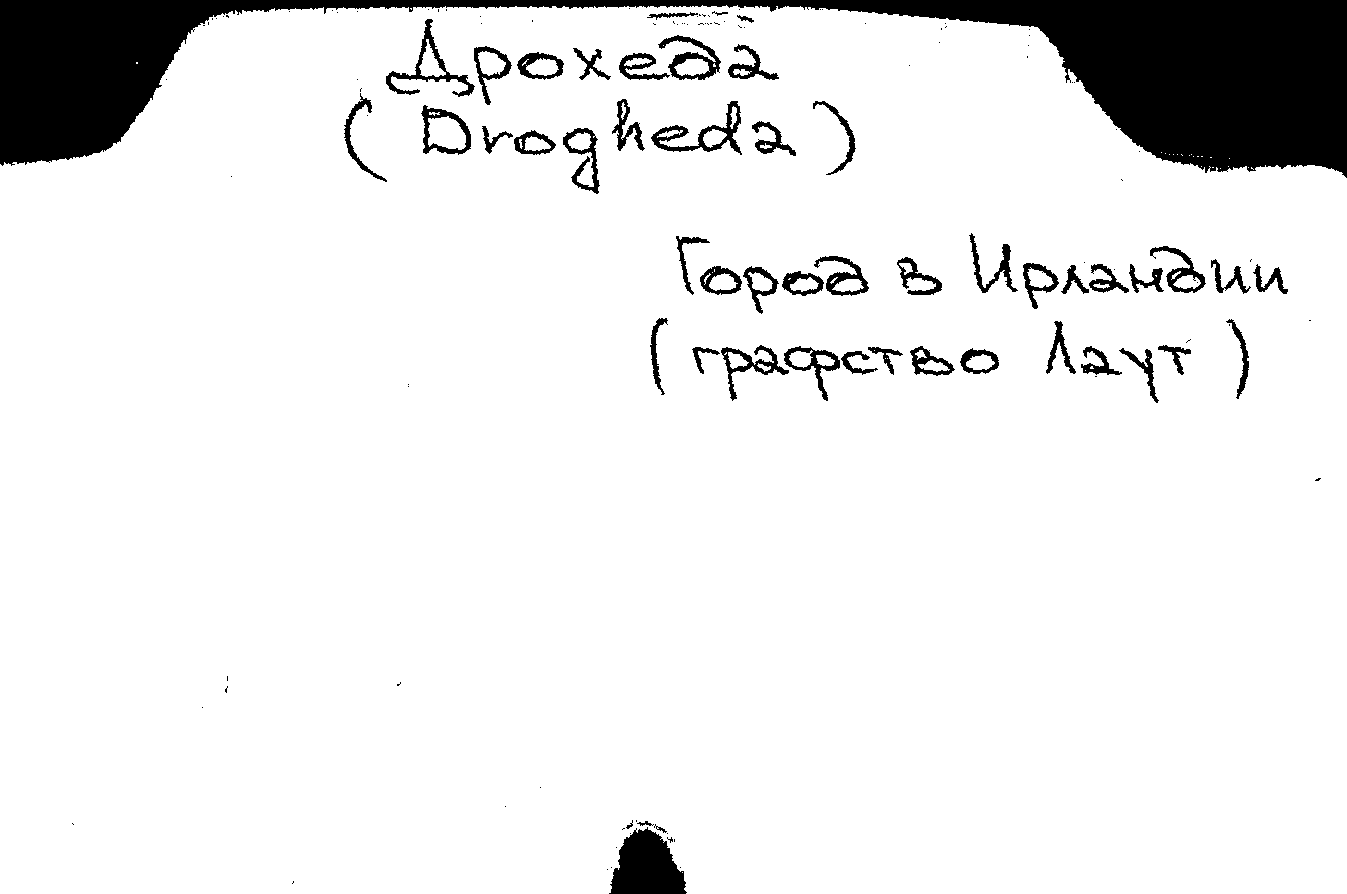 Дрохеда
(Drogheda)
Город в Ирландии
(графство Лаут)